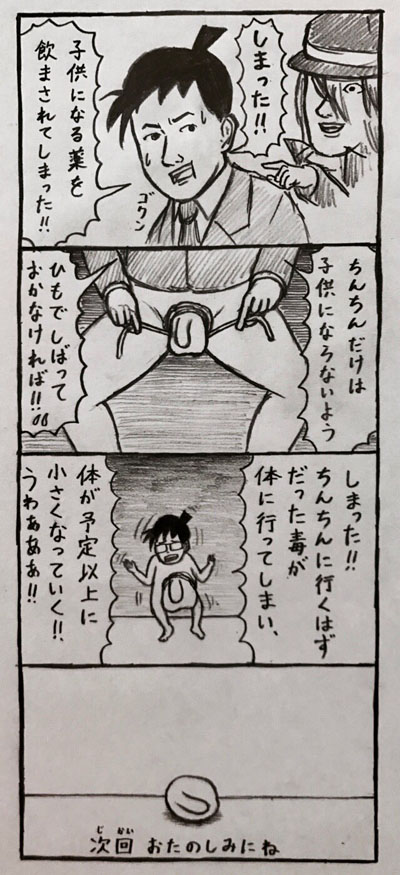 しまった!!
子供になる薬を
飲まされてしまった!!
ゴクン
ちんちんだけは
子供にならないよう
ひもでしばって
おかなければ!!
しまった!!
ちんちんに行くはず
だった毒が
体に行ってしまい、
体が予定以上に
小さくなっていく!!
うわぁぁぁぁ!!
次回 おたのしみにね
じ かい